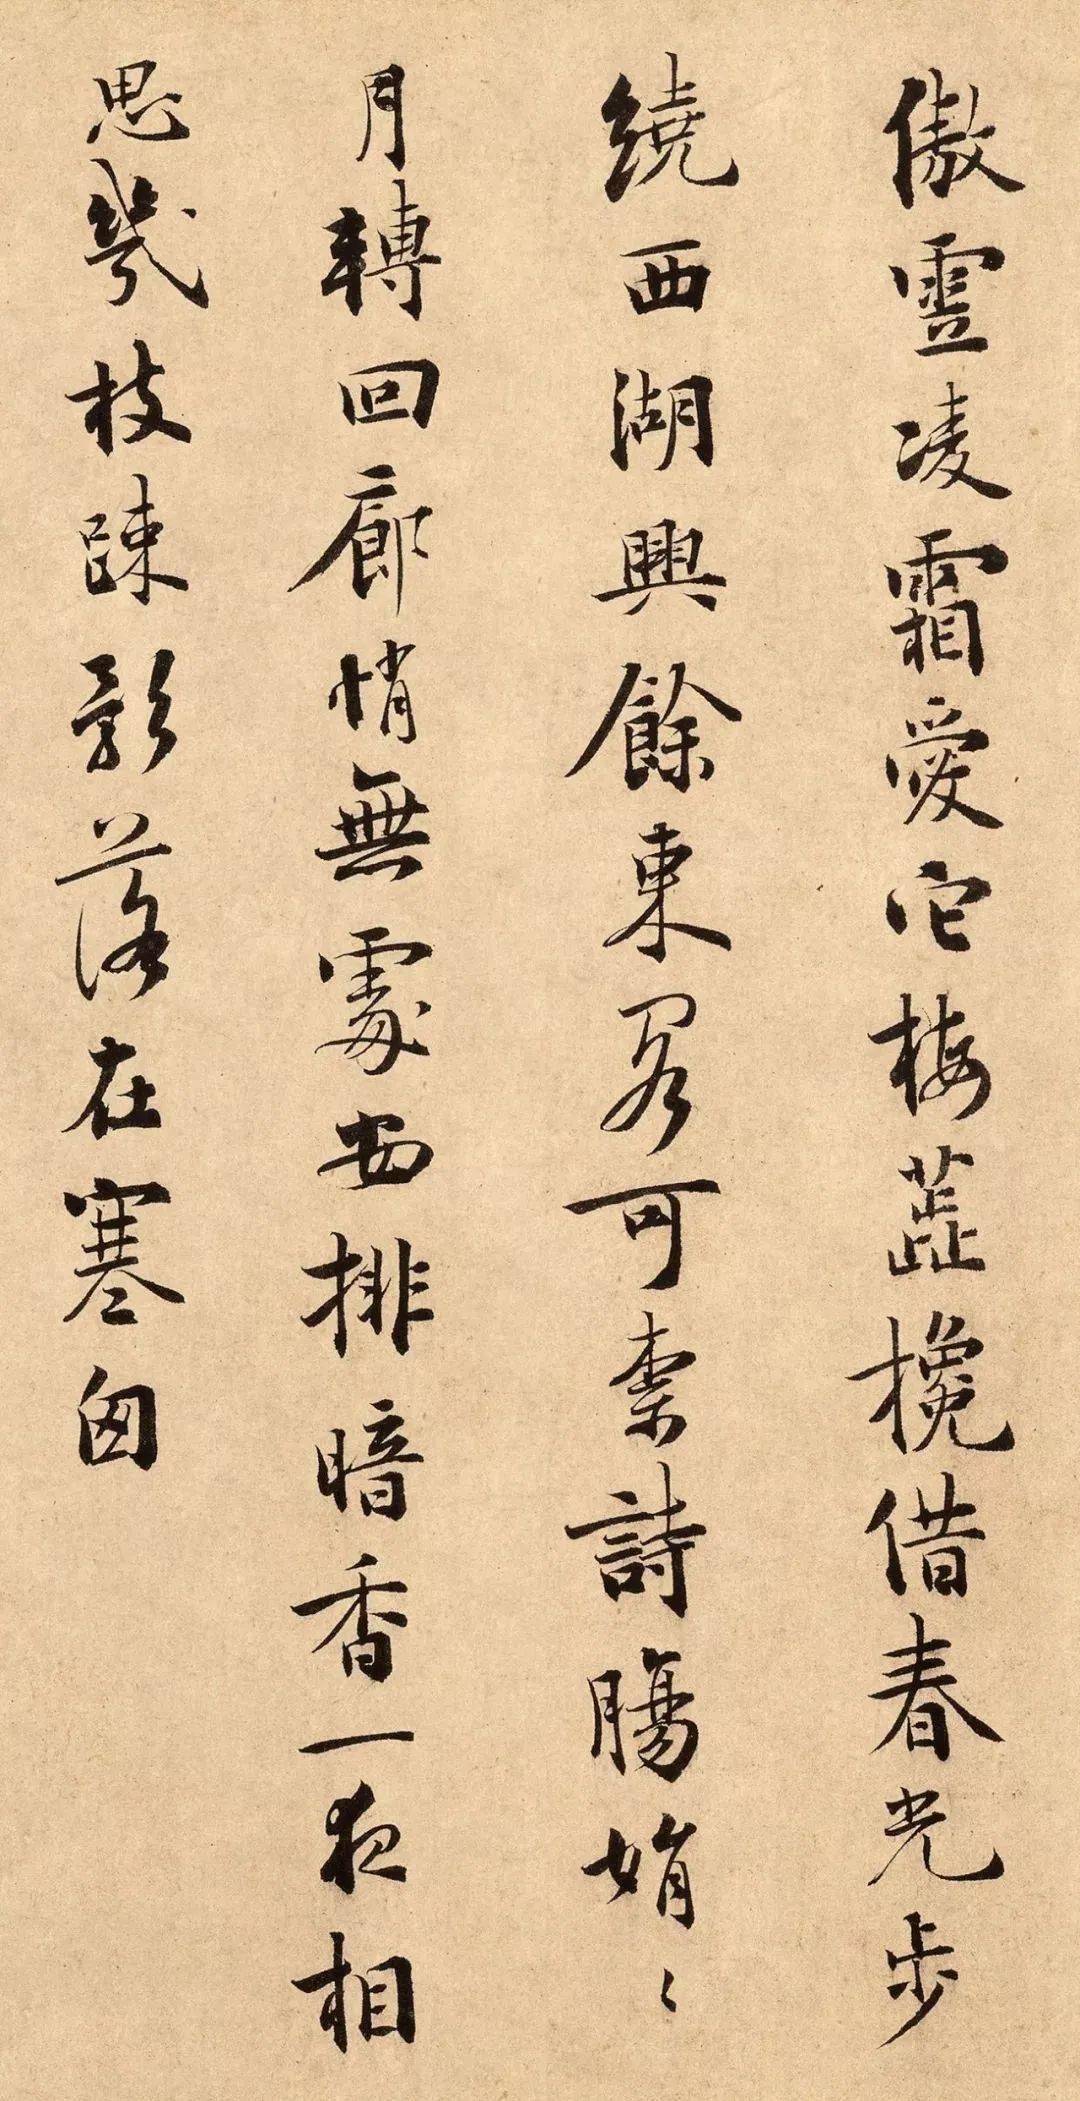 傲雪凌霜愛它梅蕊攙借春光步
繞西湖興餘東閣可柰詩腸娟〻
月轉回廊悄無處安排暗香一夜相
思幾枝踈影落在寒囱